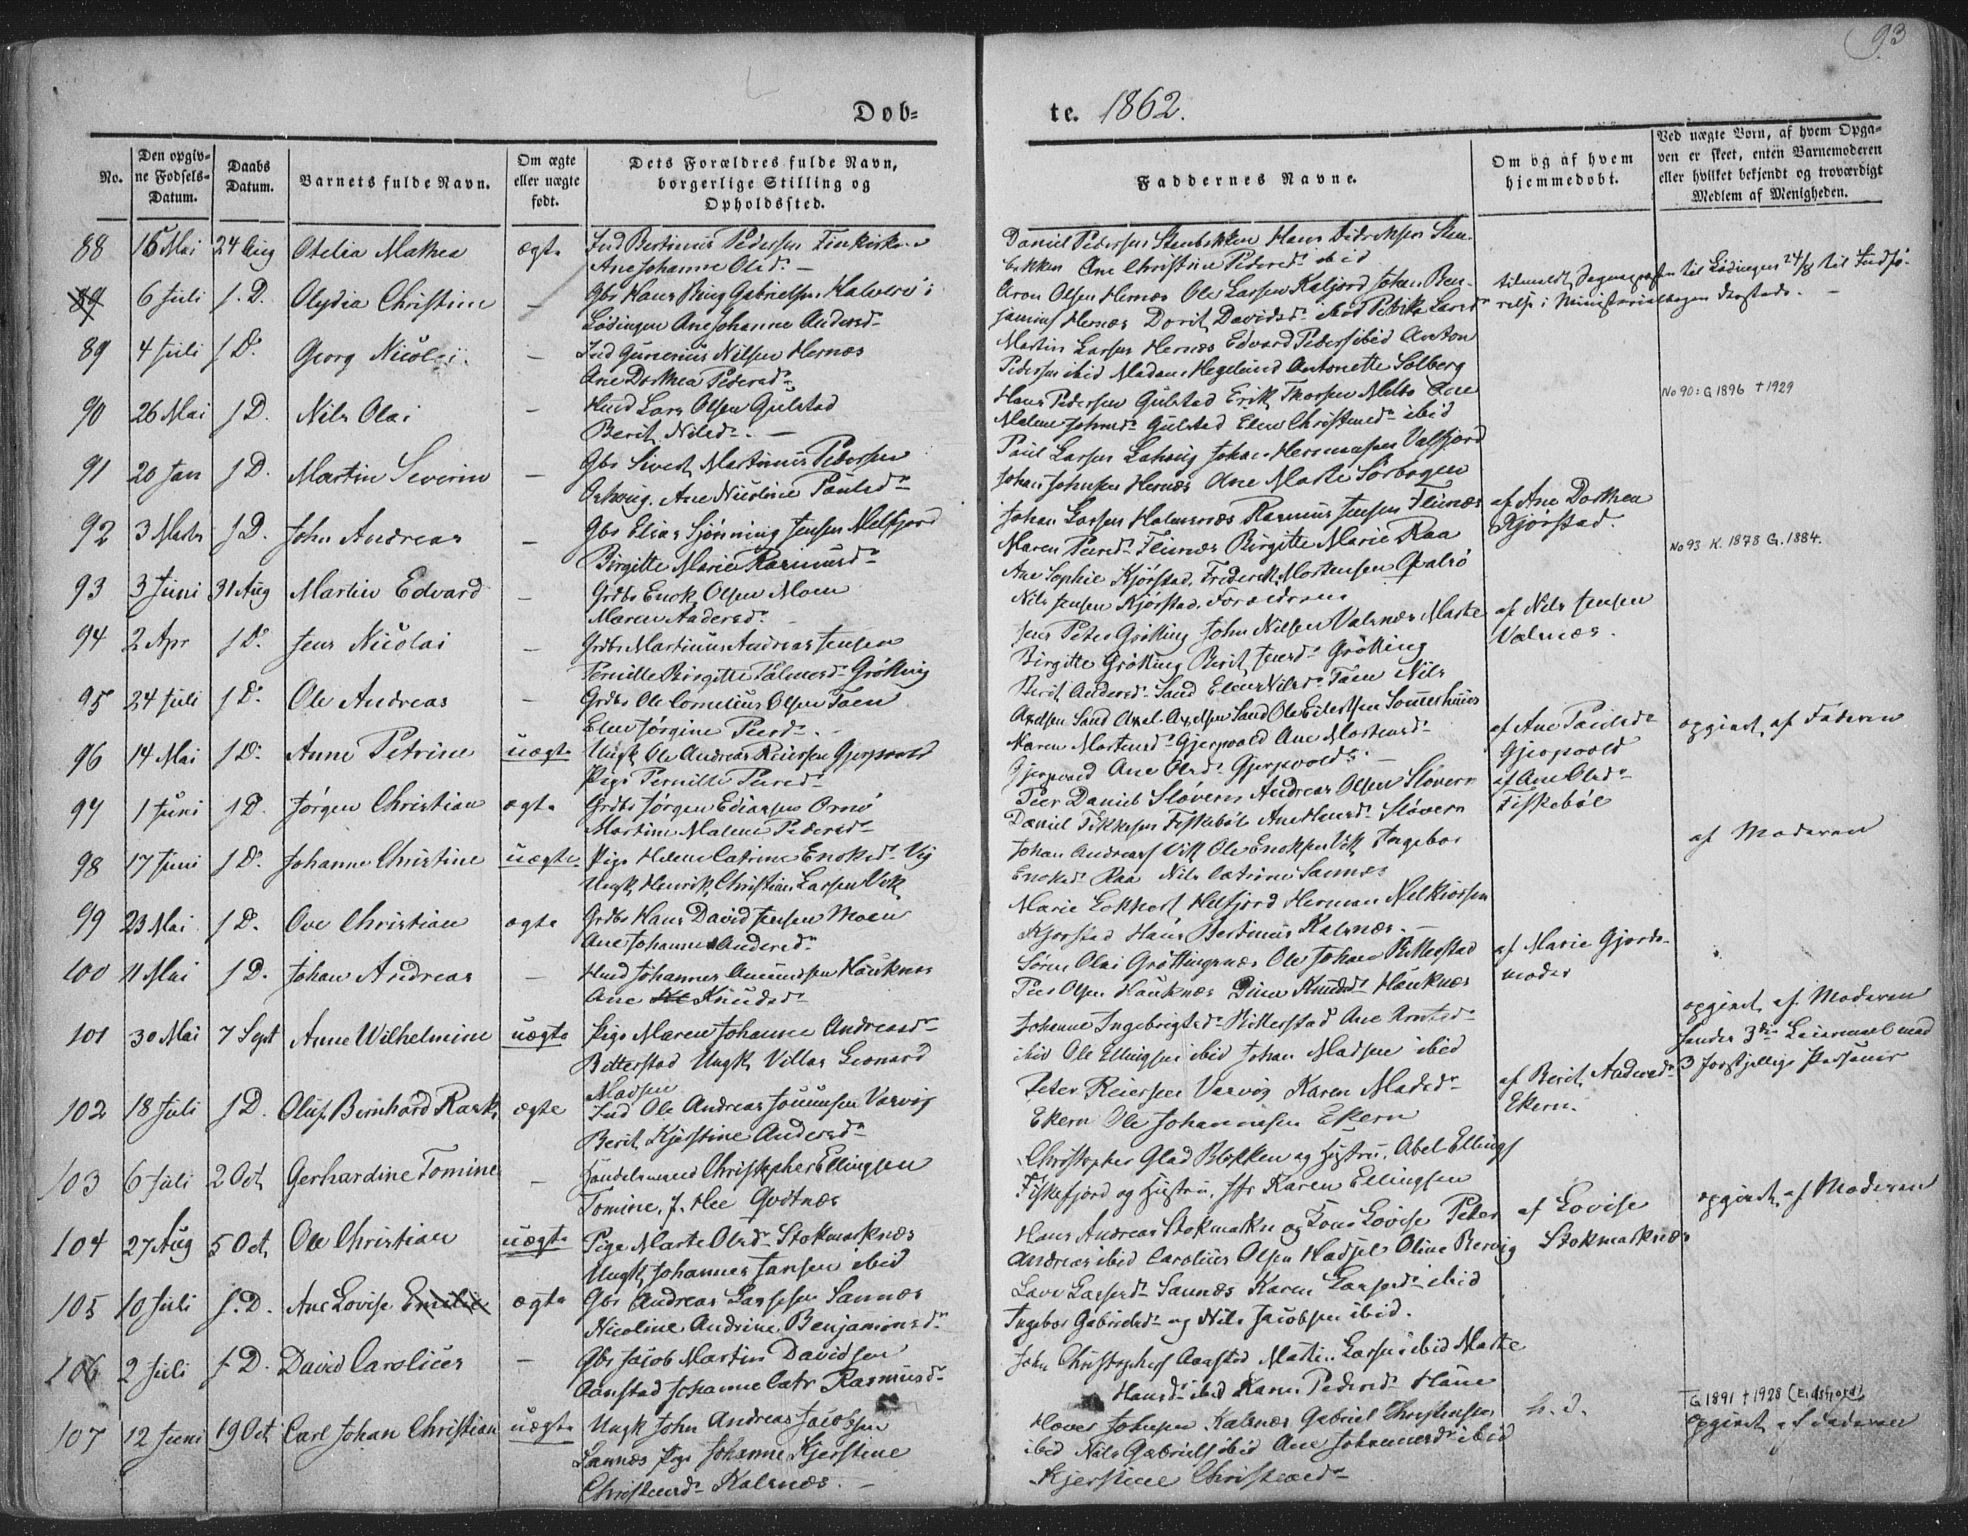 93
Dob- te. 1862.
No. | Den opgivne Fødsels-Datum. | Daabs Datum. | Barnets fulde Navn. | Om ægte eller uægte født. | Dets Forældres fulde Navn, borgerlige Stilling og Opholdssted. | Faddernes Navne. | Om og af hvem hjemmedøbt. | Ved uægte Børn, af hvem Opgaven er skeet, enten Barnemoderen eller hvilket bekjendt og troværdigt Medlem af Menigheden.
88 16 Mai 24 Aug Otelia Mathea ægte Ind Bertinus Pedersen
Ane Johanne Olsd. —
Daniel Pedersen Stenbakken Hans Didriksen Sten-
bakken Ane Christine Pedersd. ibid
89 6 Juli J. D. Olydia Christine — Gbr Hans Bing Gabrielsen
Lødingen Ane Johanne Andersd.
Aron Olsen Hernæs Ole Larsen Kaljord Johan Ben-
jamins Hernæs Dorit Davidsd. ibid
til Lødingen 24/8 til Indfø-
relse i Ministerialbogen dersteds. —
89 4 Juli J D. Georg Nicolai — Ind Gunerius Nilsen Hernæs
Ane Dorthea Pedersd.
Martin Larsen Hernæs Edvard Peders ibid Anton
Pedersen ibid Madam Hegelund Antonette Solberg
90 26 Mai J D. Nils Olai — Hmd Lars Olsen Gulstad
Berit Nilsd. —
Hans Pedersen Gulstad Erik Thorsen Melbo Ane
Malene Johnsd. Gulstad Elen Christensd. ibid
No 90: G 1896 † 1929
91 20 Jan J D. Martin Severin — Gbr Sivert Martinus Pedersen
Ane Nicoline Paulsd.
Paul Larsen Johan Hermansen Valfjord
Johan Johnsen Hernæs Ane Marte Sørbogen
92 3 Marts J D. John Andreas — Gbr Elias Sjønning Jensen Melfjord
Birgitte Marie Rasmusd.
Johan Larsen Holmsnæs Rasmus Jensen Flinnæs
Maren Peersd. Flinnæs Birgitte Marie Raa
af Ane Dorthea
Kjørstad.
93 3 Juni 31 Aug Martin Edvard — Grdbr Enok Olsen Moen
Maren Andersd.
Ane Sophie Kjørstad. Frederik Mortensen Qvalsø
Nils Jensen Kjørstad. Forældrene
No 93 K. 1878 G. 1884.
94 2 Apr J D. Jens Nicolai — Grdbr Martinus Andreas Jensen
Pernille Birgitte Grøtting
Jens Peter Grøtting John Nilsen Valsnæs Marte
Birgitte Grøtting Berit Jensd. Grøtting
af Nils Jensen
Valsnæs.
95 24 Juli J D. Ole Andreas — Grdbr Ole Cornelius Olsen Taen
Elen Jørgine Peersd.
Berit Andersd. Sand Elen Nilsd. Taen Nils
Axelsen Sand Axel Axelsen Sand Ole Eilertsen Sommerhuus
96 14 Mai J D. Anne Petrine uægte Ungk Ole Andreas Reiersen Gjerpvold
Pige Pernille Peersd.
Karen Mortensd. Gjerpvold Ane Mortensd.
Gjerpvold Ane Olsd. Gjerpvold. —
af Ane Paulsd.
Gjerpvold
opgivet af Faderen
97 1 Juni J D. Jørgen Christian ægte Grdbr Jørgen Ediassen Ornø
Martine Malene Pedersd.
Peer Daniels Sløveren Andreas Olsen Sløveren
Daniel Fikkesen Fiskebøl Ane Hansd. Sløveren
af Ane Olsd.
Fiskebøl
98 17 Juni J D. Johanne Christine uægte Pige Helene Catrine Enoksd. Vig
Ungk Henrik Christian Larsen Vik
Johan Andreas Vik Ole Enoksen Vik Ingebor
Enoksd. Raa Nils Catrine Sannes
af Moderen
99 23 Mai J D. Ove Christian ægte Grdbr Hans David Jensen Moen
Ane Johanne Andersd.
Marie Herman
Kjørstad Hans Bertinus Kalsnæs. —
100 11 Mai J D. Johan Andreas — Hmd Johannes Amundsen Hauknæs
Ane Knudsd.
Søren Olai Grøttingsnæs Ole Johan Bitterstad
Peer Olsen Hauknæs Dina Knudsd. Hauknæs
af Marie Gjorde-
moder
101 30 Mai 7 Sept Anne Wilhelmine uægte Pige Maren Johanne Andreasd.
Bitterstad Ungk Villas Leonard
Madsen
Johanne Ingebrigtsd. Bitterstad Ane Arntsd.
ibid Ole Ellingsen ibid Johan Madsen ibid
opgivet af Moderen
hendes 3die Leiermaal med
3 forskjellige Personer
102 18 Juli J D. Oluf Bernhard Rask ægte Ind Ole Andreas Joununsen Varvig
Berit Kjerstine Andersd.
Peter Reiersen Varvig Karen Madsd.
Ekern Ole Johannesen Ekern
af Berit Andersd.
Ekern.
103 6 Juli 2 Oct Gerhardine Tomine — Handelsmand Christopher Ellingsen
Tomine, f. Hee Godtnæs
Christopher Glad Blokken og Hustru, Abel Ellings
Fiskefjord og Hustru, Karen Ellingsen
104 27 Aug 5 Oct Ole Christian uægte Pige Marte Olsd. Stokmarknæs
Ungk Johannes Jansen ibid
Hans Andreas Stokmarkn og Kone Lovise Peter
Andreas ibid Carolius Olsen Hadsel Oline Bervig
af Lovise
Stokmarknæs
opgivet af Moderen
105 10 Juli J. D. Ane Lovise Emilie ægte Gbr Andreas Larssen Sannæs
Nicoline Andrine Benjaminsd.
Lave Larsd. Sannæs Karen Larsd. ibid
Ingebor Gabrielsd. og Nils Jacobsen ibid.
106 2 Juli J. D. David Carolius — Gbr Jacob Martin Davidsen
Aanstad Johanne Catr Rasmusd.
John Christophers Aanstad Martin Larsen ibid Marte
Hansd. ibid Karen Pedersd. Haue
G 1891 † 1928 (Eidsfjord)
107 12 Juni 19 Oct Carl Johan Christian uægte Ungk John Andreas Jacobsen
Sannæs Pige Johanne Kjerstine
Christensd. Kalsnæs. —
Hover Johnsen Kalsnæs Gabriel Christensen
ibid Nils Gabriels ibid Ane Johannesd. ibid
Kjerstine Christensd.
h. d.
opgivet af Faderen